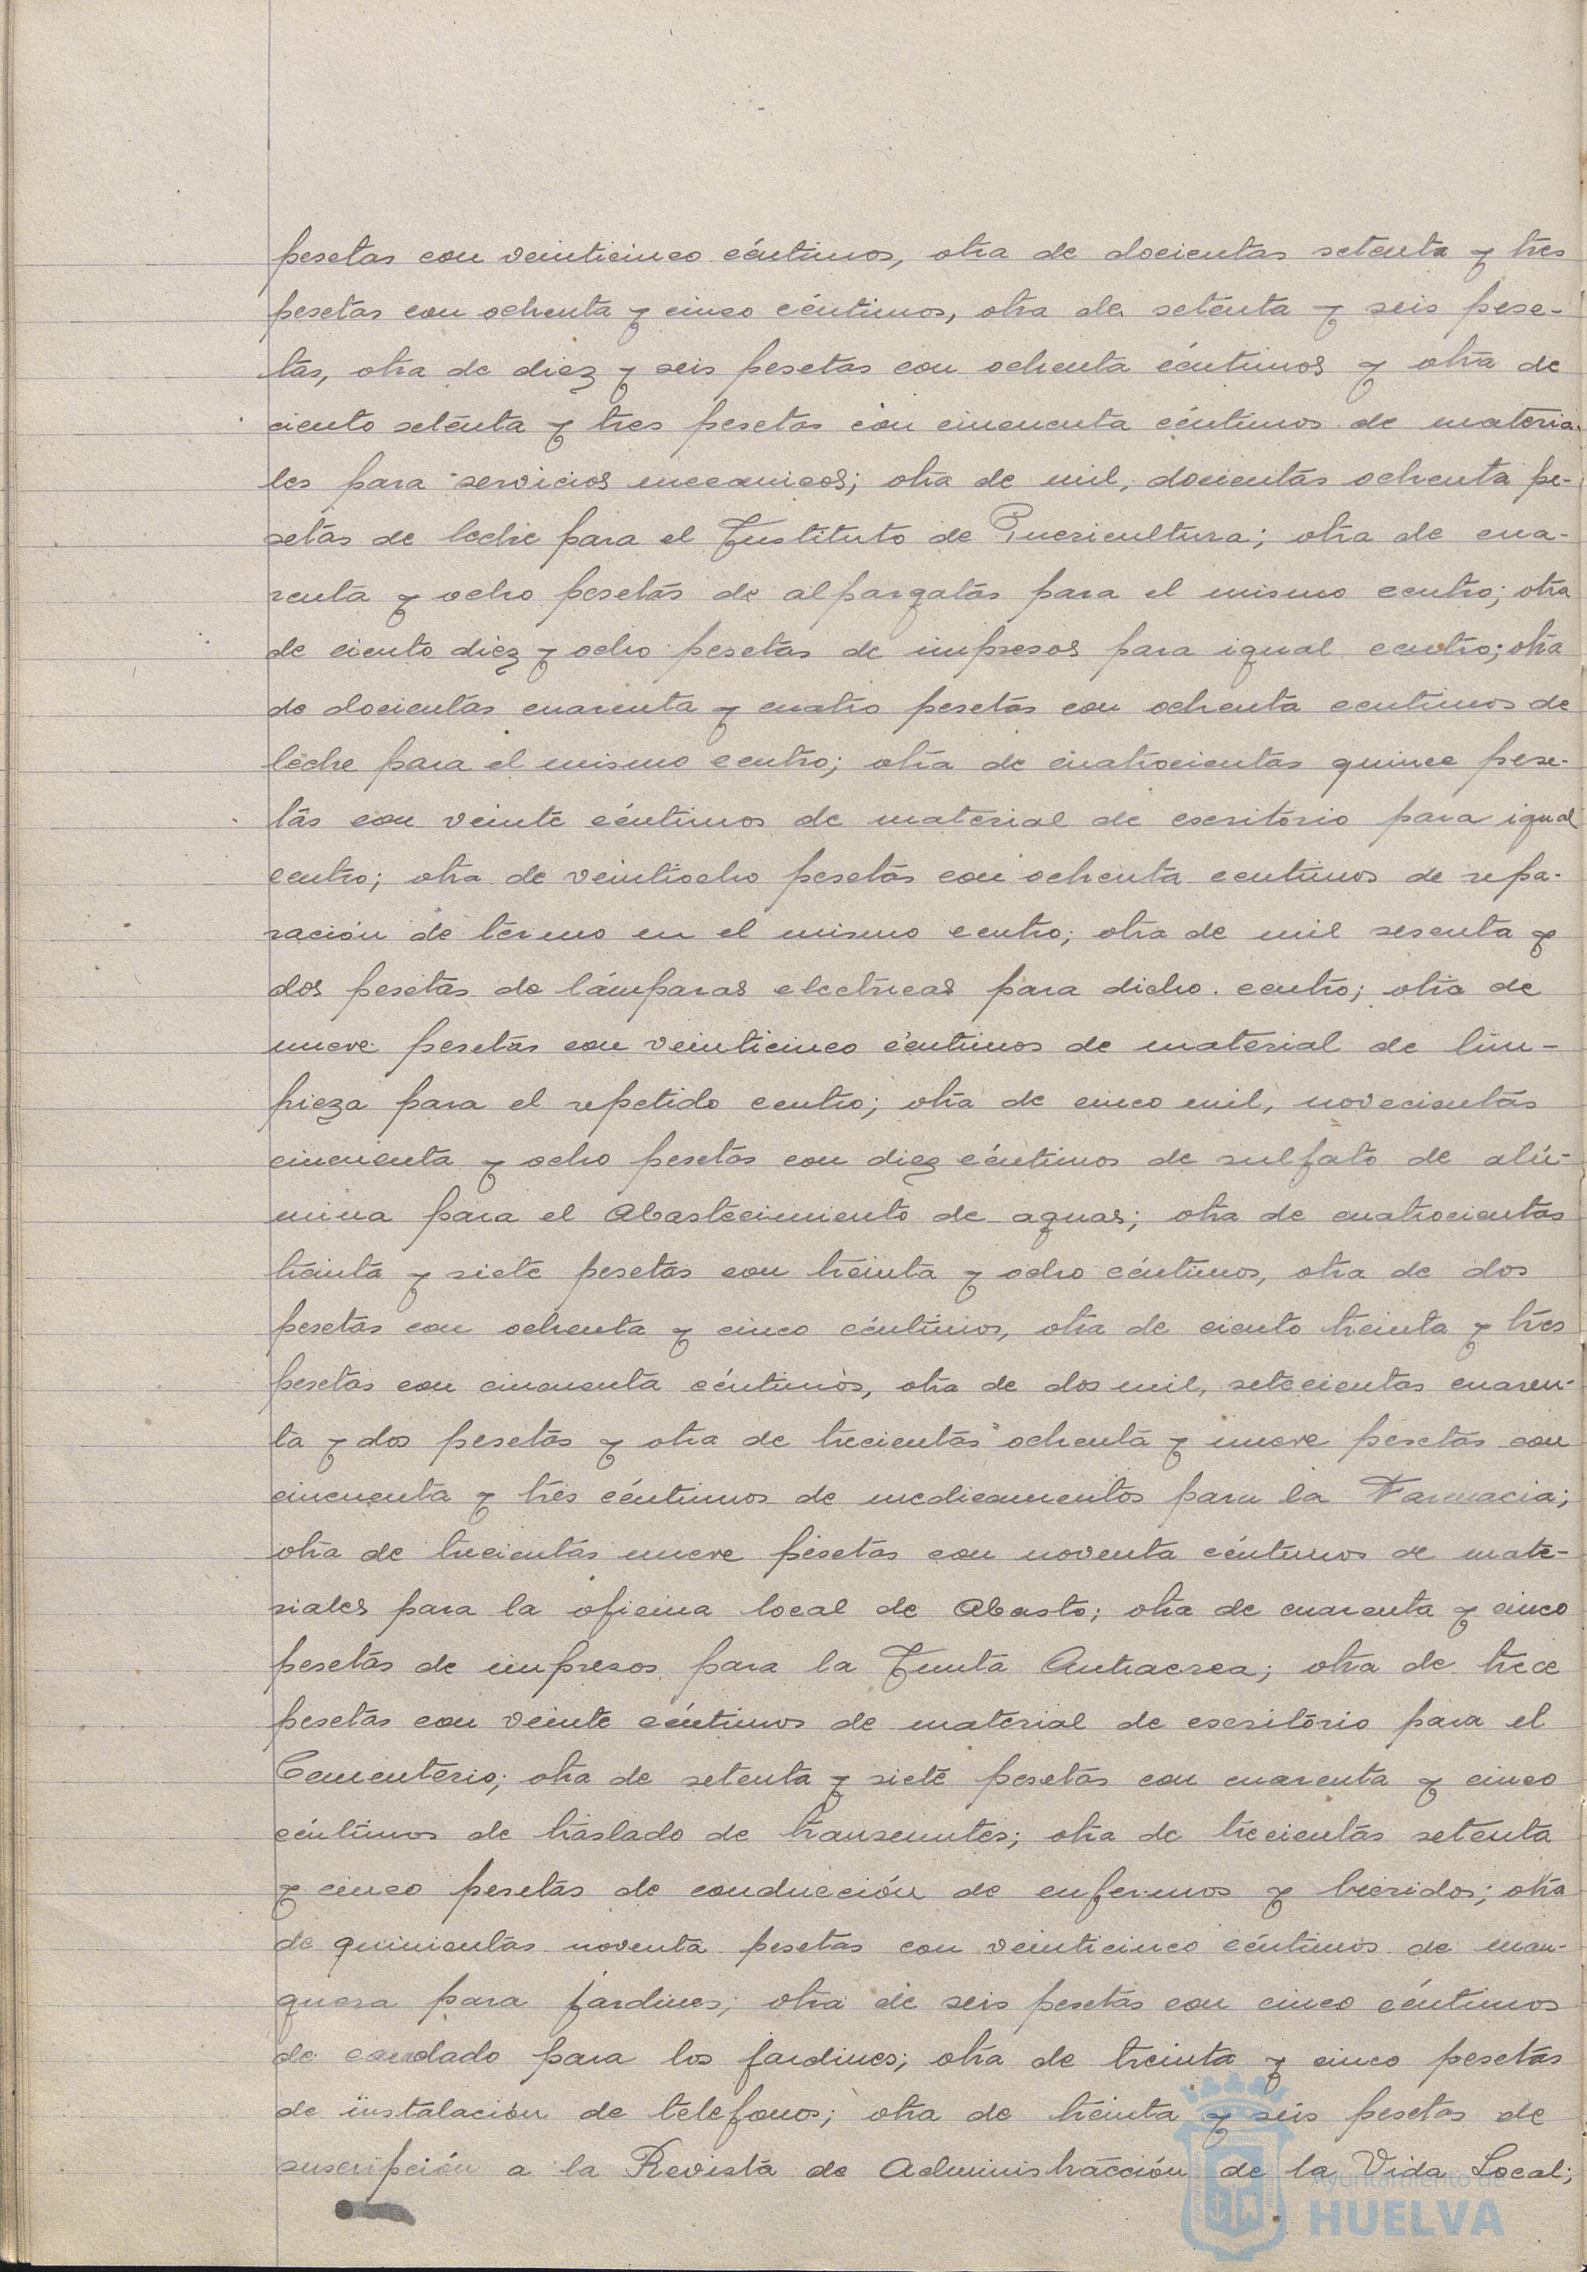 pesetas con veinticinco céntimos, otra de docientas setenta y tres
pesetas con ochenta y cinco céntimos, otra de setenta y seis pese-
tas, otra de diez y seis pesetas con ochenta céntimos y otra de
ciento setenta y tres pesetas con cincuenta céntimos de materia-
les para servicios mecanicos; otra de mil, docientas ochenta pe-
setas de leche para el Instituto de Puericultura; otra de cua-
renta y ocho pesetas de alpargatas para el mismo centro; otra
de ciento diez y ocho pesetas de impresos para igual centro; otra
de docientas cuarenta y cuatro pesetas con ochenta centimos de
leche para el mismo centro; otra de cuatrocientas quince pese-
tas con veinte céntimos de material de escritorio para igual
centro; otra de veintiocho pesetas con ochenta centimos de repa-
ración de termo en el mismo centro; otra de mil sesenta y
dos pesetas de lámparas electricas para dicho centro; otra de
nueve pesetas con veinticinco céntimos de material de lim-
pieza para el repetido centro; otra de cinco mil, novecientas
cincuenta y ocho pesetas con diez céntimos de sulfato de alú-
mina para el Abastecimiento de aguas; otra de cuatrocientas
treinta y siete pesetas con treinta y ocho céntimos, otra de dos
pesetas con ochenta y cinco céntimos, otra de ciento treinta y tres
pesetas con cincuenta céntimos, otra de dos mil, setecientas cuaren-
ta y dos pesetas y otra de trecientas ochenta y nueve pesetas con
cincuenta y tres céntimos de medicamentos para la Farmacia;
otra de trecientas nueve pesetas con noventa céntimos de mate-
riales para la oficina local de Abasto; otra de cuarenta y cinco
pesetas de impresos para la Junta Antiaerea; otra de trece
pesetas con veinte céntimos de material de escritorio para el
Cementerio; otra de setenta y siete pesetas con cuarenta y cinco
céntimos de traslado de transeuntes; otra de trecientas setenta
y cinco pesetas de conducción de enfermos y heridos; otra
de quinientas noventa pesetas con veinticinco céntimos de man-
guera para jardines; otra de seis pesetas con cinco céntimos
de candado para los jardines; otra de treinta y cinco pesetas
de instalación de telefonos; otra de treinta y seis pesetas de
suscripción a la Revista de Administracción de la Vida Local;
Ayuntamiento de
HUELVA